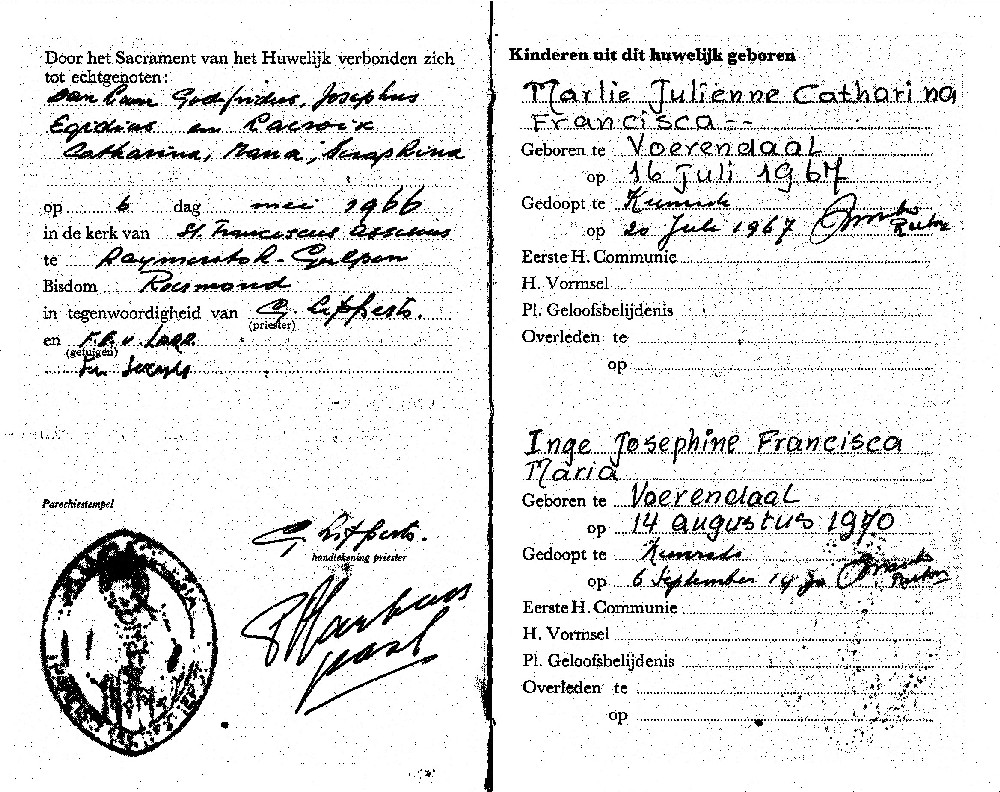 Door het Sacrament van het Huwelijk verbonden zich
tot echtgenoten:
van Laar Godfridus, Josephus
Egidius en Lacroix
Catharina, Maria, Seraphina
op 6 dag mei 1966
in de kerk van St. Franciscus Assisius
te Reymerstok-Gulpen
Bisdom Roermond
in tegenwoordigheid van G. Lipperts.
(priester)
en F.E. v. Laar
(getuigen)
Parochiestempel
G. Lipperts.
handtekening priester
past
Kinderen uit dit huwelijk geboren
Marlie Julienne Catharina
Francisca --
Geboren te Voerendaal
op 16 Juli 1967
Gedoopt te Kunrade
op 20 Juli 1967 Rector
Eerste H. Communie
H. Vormsel
Pl. Geloofsbelijdenis
Overleden te
op
Inge Josephine Francisca
Maria
Geboren te Voerendaal
op 14 augustus 1970
Gedoopt te Kunrade
op 6 September 1970 Rector
Eerste H. Communie
H. Vormsel
Pl. Geloofsbelijdenis
Overleden te
op